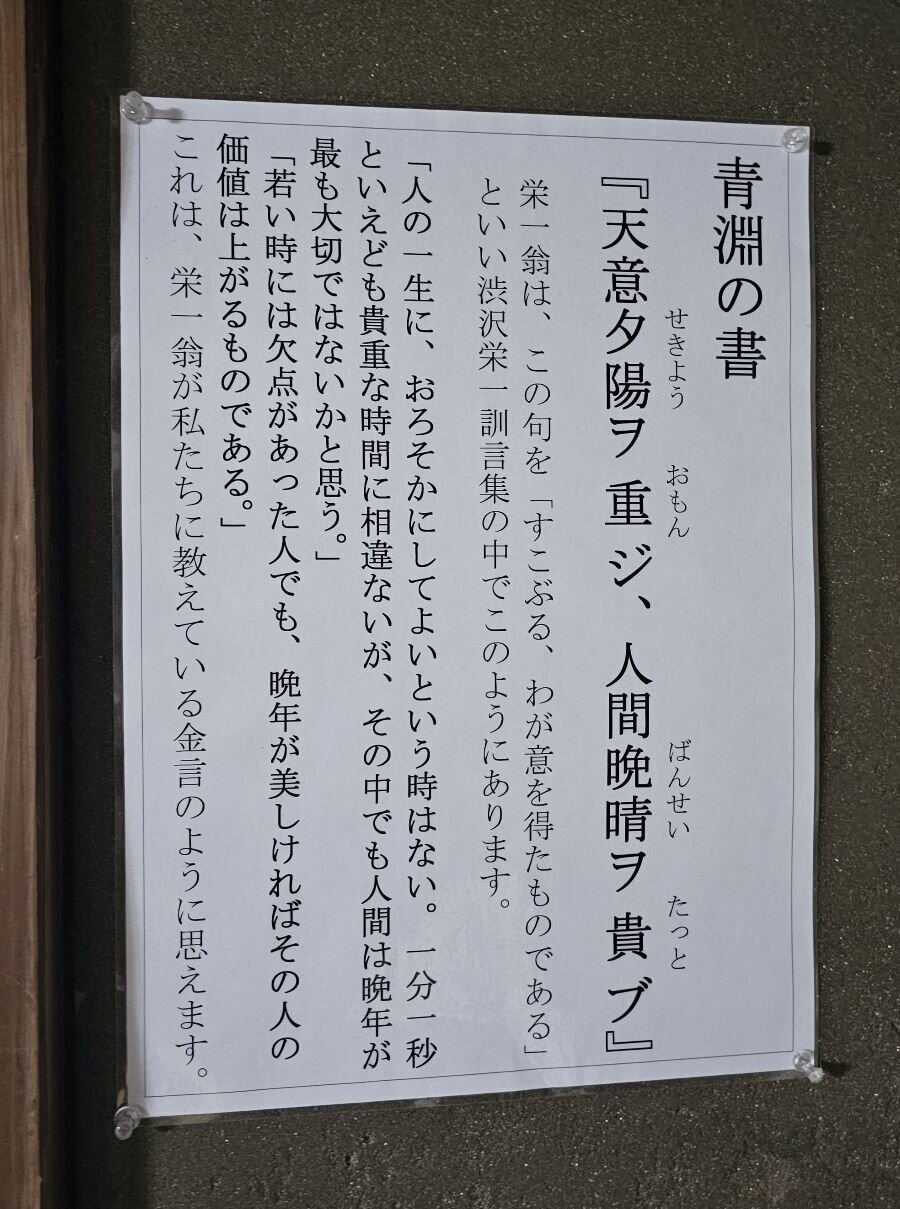 青淵の書
『天意夕陽ヲ重ジ、人間晩晴ヲ貴ブ』
せきよう おもん ばんせい たっと
栄一翁は、この句を「すこぶる、わが意を得たものである」
といい渋沢栄一訓言集の中でこのようにあります。
「人の一生に、おろそかにしてよいという時はない。一分一秒
といえども貴重な時間に相違ないが、その中でも人間は晩年が
最も大切ではないかと思う。」
「若い時には欠点があった人でも、晩年が美しければその人の
価値は上がるものである。」
これは、栄一翁が私たちに教えている金言のように思えます。